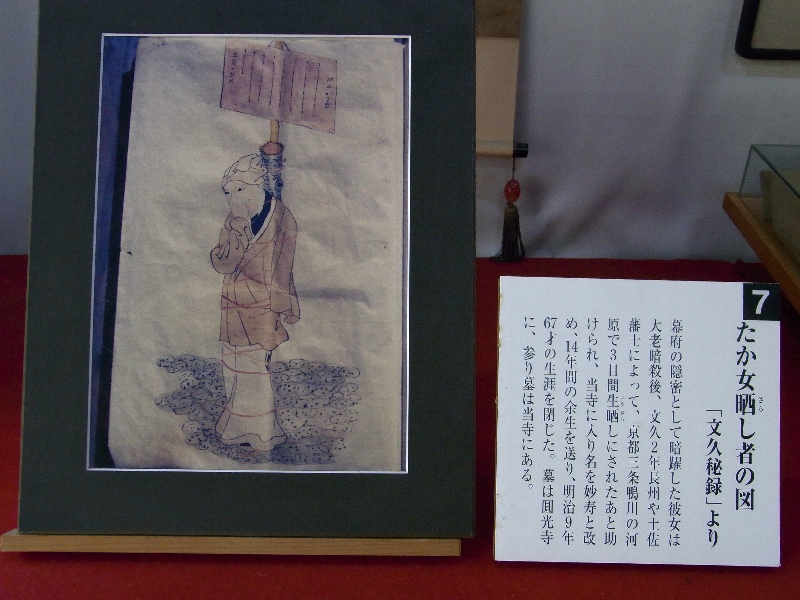 7
たか女晒し者の図
さら
「文久秘録」より
幕府の隠密として暗躍した彼女は
大老暗殺後、文久2年長州や土佐
藩士によって、京都三条鴨川の河
原で3日間生晒しにされたあと助
けられ、当寺に入り名を妙寿と改
め、14年間の余生を送り、明治9年
67才の生涯を閉じた。墓は圓光寺
に、参り墓は当寺にある。